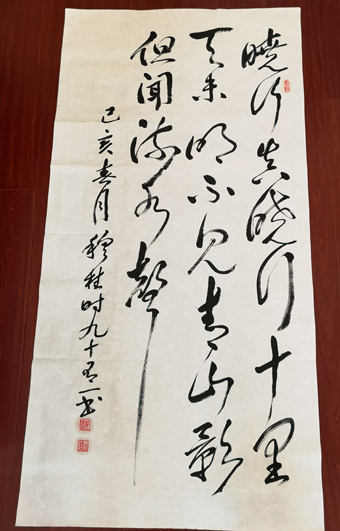 晓行真晓行十里
天未明不见青山影
但闻流水声
己亥春月 穆桂时九十有一书